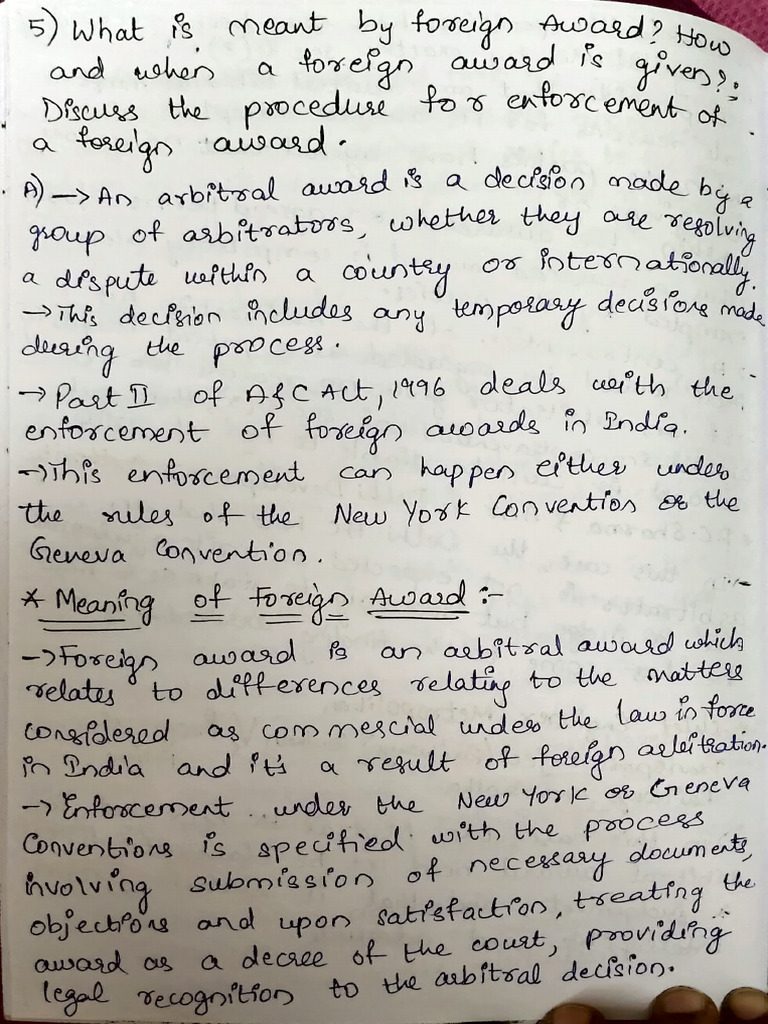 5) What is meant by foreign Award? How
and when a foreign award is given?:
Discuss the procedure for enforcement of
a foreign award.
A) → An arbitral award is a decision made by a
group of arbitrators, whether they are resolving
a dispute within a country or internationally.
→ This decision includes any temporary decisions made
during the process.
→ Part II of A&C Act, 1996 deals with the
enforcement of foreign awards in India.
→ This enforcement can happen either under
the rules of the New York Convention or the
Geneva Convention.
* Meaning of Foreign Award :-
→ Foreign award is an arbitral award which
relates to differences relating to the matters
considered as commercial under the law in force
in India and it's a result of foreign arbitration.
→ Enforcement under the New York or Geneva
Conventions is specified with the process
involving submission of necessary documents,
objections and upon satisfaction, treating the
award as a decree of the court, providing
legal recognition to the arbitral decision.